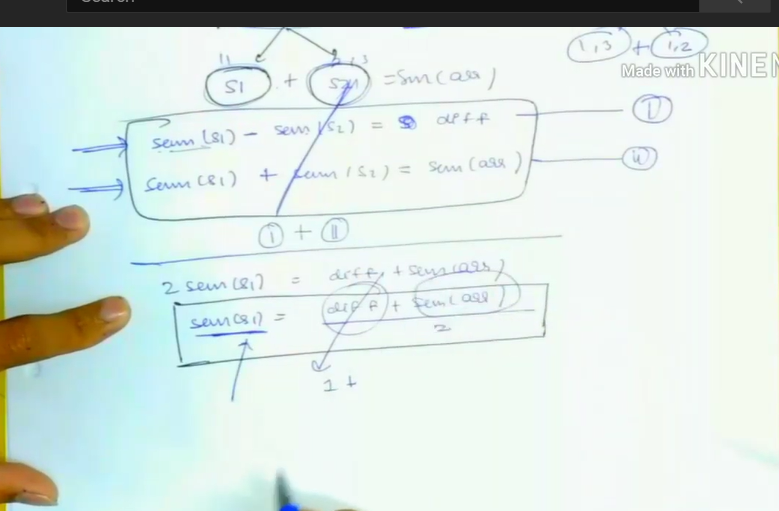 1,3 + 1,2
Made with KINEM
S1 + S2 = Sum(arr)
sum(S1) - sum(S2) = diff I
sum(S1) + sum(S2) = sum(arr) II
I + II
2 sum(S1) = diff + sum(arr)
sum(S1) = diff + sum(arr)
2
1 +